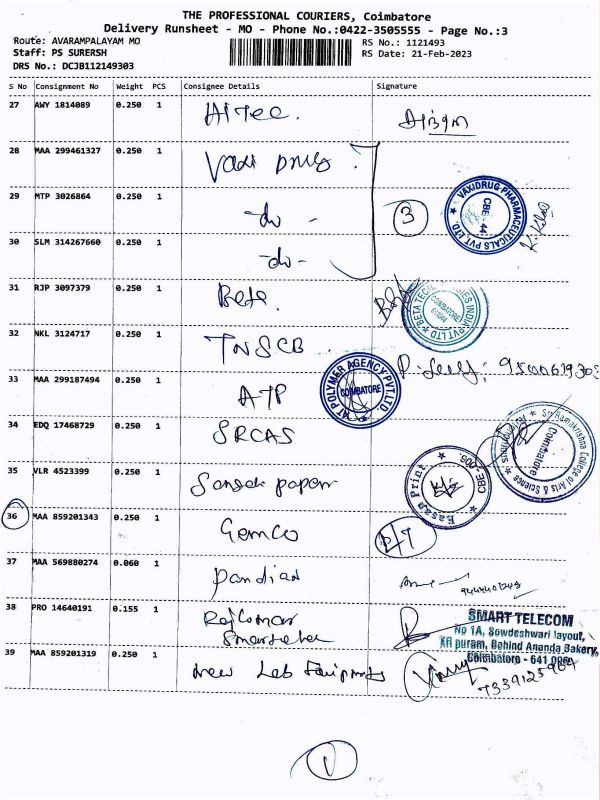 THE PROFESSIONAL COURIERS, Coimbatore
Delivery Runsheet - MO - Phone No.:0422-3505555 - Page No.:3
Route: AVARAMPALAYAM MO
RS No.: 1121493
Staff: PS SURERSH
RS Date: 21-Feb-2023
DRS No.: DCJB112149303
S No Consignment No Weight PCS Consignee Details Signature
27 AWY 1814089 0.250 1 HiTec.
28 MAA 299461327 0.250 1 Vaxi Drug
29 MTP 3026864 0.250 1 -do- 3
VAXIDRUG PHARMACEUTICALS PVT LTD. CBE-44
30 SLM 314267660 0.250 1 -do-
31 RJP 3097379 0.250 1 Beta.
32 NKL 3124717 0.250 1 TNSCB
33 MAA 299187494 0.250 1 ATP
POLYMER AGENCY PVT.LTD COIMBATORE
34 EDQ 17468729 0.250 1 SRCAS
Sri Ramakrishna College of Arts & Science Coimbatore
35 VLR 4523399 0.250 1
Easan Print CBE-006.
36 MAA 859201343 0.250 1 Gemco
37 MAA 569880274 0.060 1 Pandian
38 PRO 14640191 0.155 1 Rajkumar
SMART TELECOM
No 1A, Sowdeshwari layout,
KR puram, Behind Ananda Bakery,
Coimbatore - 641 006
39 MAA 859201319 0.250 1 New Lab
1